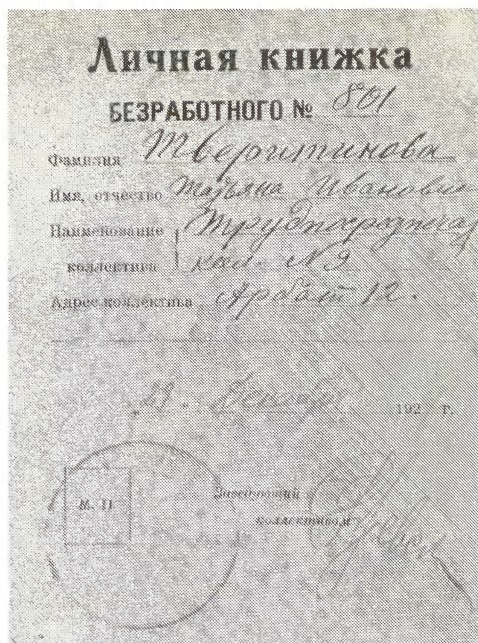 Личная книжка
БЕЗРАБОТНОГО № 801
Фамилия Тверитинова
Имя, отчество Татьяна Ивановна
Наименование
коллектива кол. №9
Адрес коллектива Арбат 12.
„29 192 г.
М. П.
Заведующий
коллективом